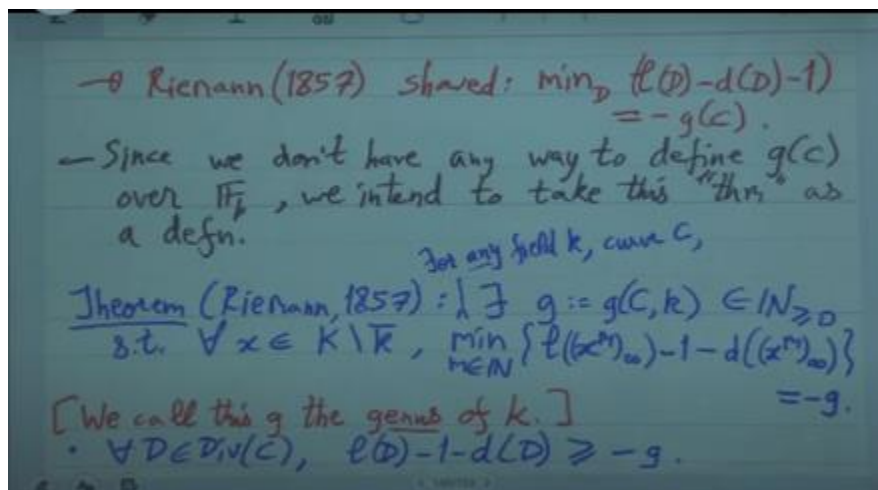 → Riemann (1857) showed: min_D (ℓ(D)-d(D)-1)
= -g(C).
- Since we don't have any way to define g(C)
over 𝔽_p, we intend to take this "thm" as
a defn.
For any field k, curve C,
Theorem (Riemann, 1857): ∃ g := g(C,k) ∈ ℕ≥0
s.t. ∀ x ∈ K \ k̄, min_{m∈ℕ} {ℓ((x^m)_∞)-1-d((x^m)_∞)}
= -g.
[We call this g the genus of k.]
• ∀ D ∈ Div(C), ℓ(D)-1-d(D) ≥ -g.